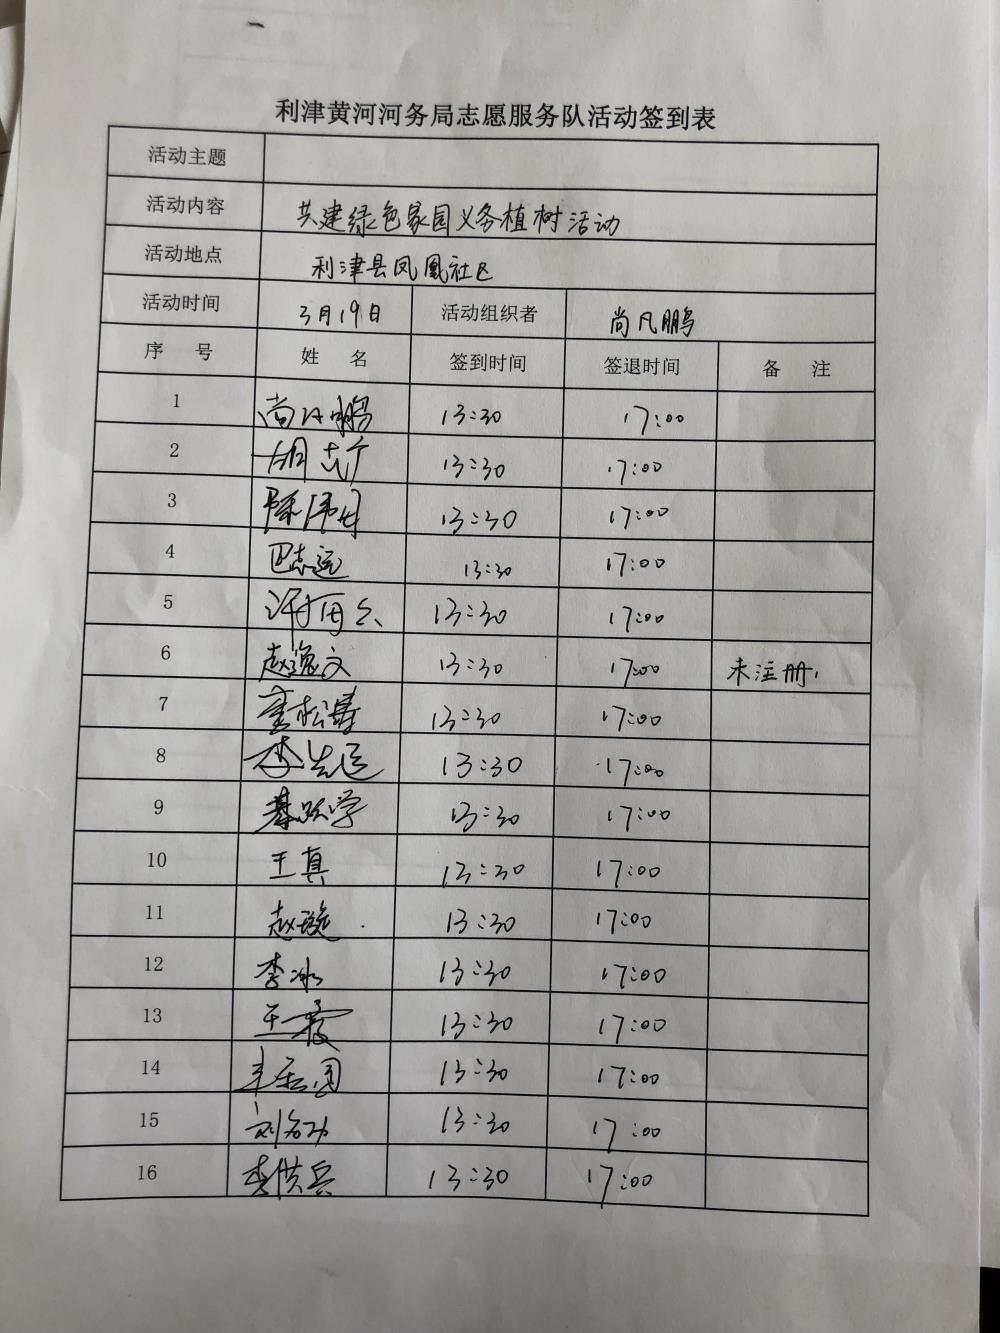 利津黄河河务局志愿服务队活动签到表
活动主题
活动内容 共建绿色家园义务植树活动
活动地点 利津县凤凰社区
活动时间 3月19日 活动组织者 尚凡鹏
序 号 姓 名 签到时间 签退时间 备 注
1 尚凡鹏 13:30 17:00
2 胡志 13:30 17:00
3 陈 13:30 17:00
4 巴志远 13:30 17:00
5 13:30 17:00
6 赵逸文 13:30 17:00 未注册
7 松涛 13:30 17:00
8 李 13:30 17:00
9 綦跃学 13:30 17:00
10 王真 13:30 17:00
11 赵璇 13:30 17:00
12 李冰 13:30 17:00
13 王 13:30 17:00
14 13:30 17:00
15 刘 13:30 17:00
16 李洪兵 13:30 17:00